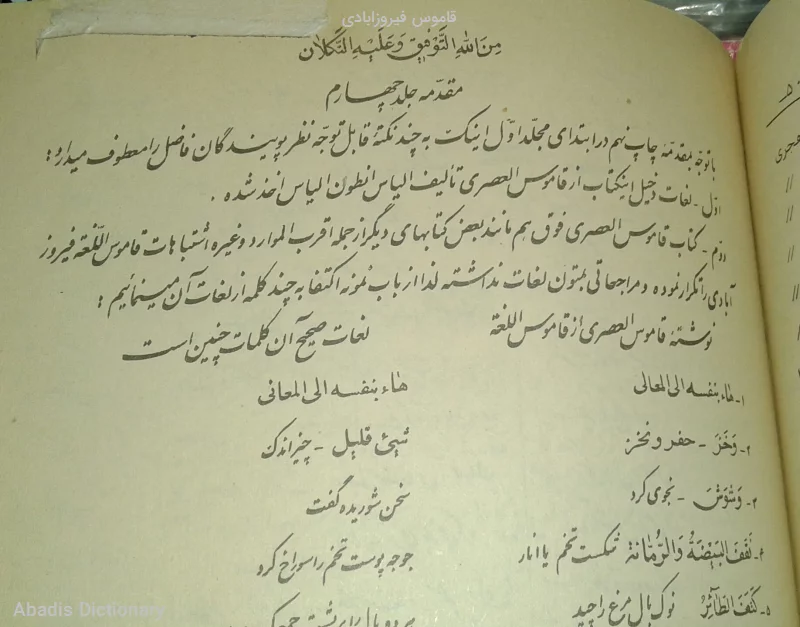 قاموس فیروزابادی
مِنَ اللهِ التَّوْفیٖق وَ عَلَیْهِ التَّکَلان
مقدّمه جلد چهارم
با توجّه بمقدّمهٔ چاپ نهم در ابتدای مجلّد اوّل اینک به چند نکتهٔ قابل توجّه نظر پویندگان فاضل را معطوف میدارد:
اوّل - لغات دخیل اینکتاب از قاموس العصری تألیف الیاس انطون الیاس اخذ شده .
دوّم - کتاب قاموس العصری فوق هم مانند بعض کتابهای دیگر از جمله اقرب الموارد و غیره اشتباهات قاموس اللّغة فیروز
آبادی را تکرار نموده و مراجعاتی بمتون لغات نداشته لذا از باب نمونه اکتفا به چند کلمه از لغات آن مینمائیم :
نوشتهٔ قاموس العصری از قاموس اللغة
لغات صحیح آن کلمات چنین است
۱- هاء بنفسه الی المعالی
هاء بنفسه الی المعانی
۲- وَخَزَ - حفر و نخز
شیئ قلیل - چیز اندک
۳- وَشْوَشَ - نجوی کرد
سخن شوریده گفت
۴- نَقَفَ البَیْضَةُ وَالرُّمّانة شکست تخم یا انار
جوجه پوست تخم را سوراخ کرد
۵- کَتَفَ الطّائِرُ نوک بال مرغ را چید
Abadis Dictionary